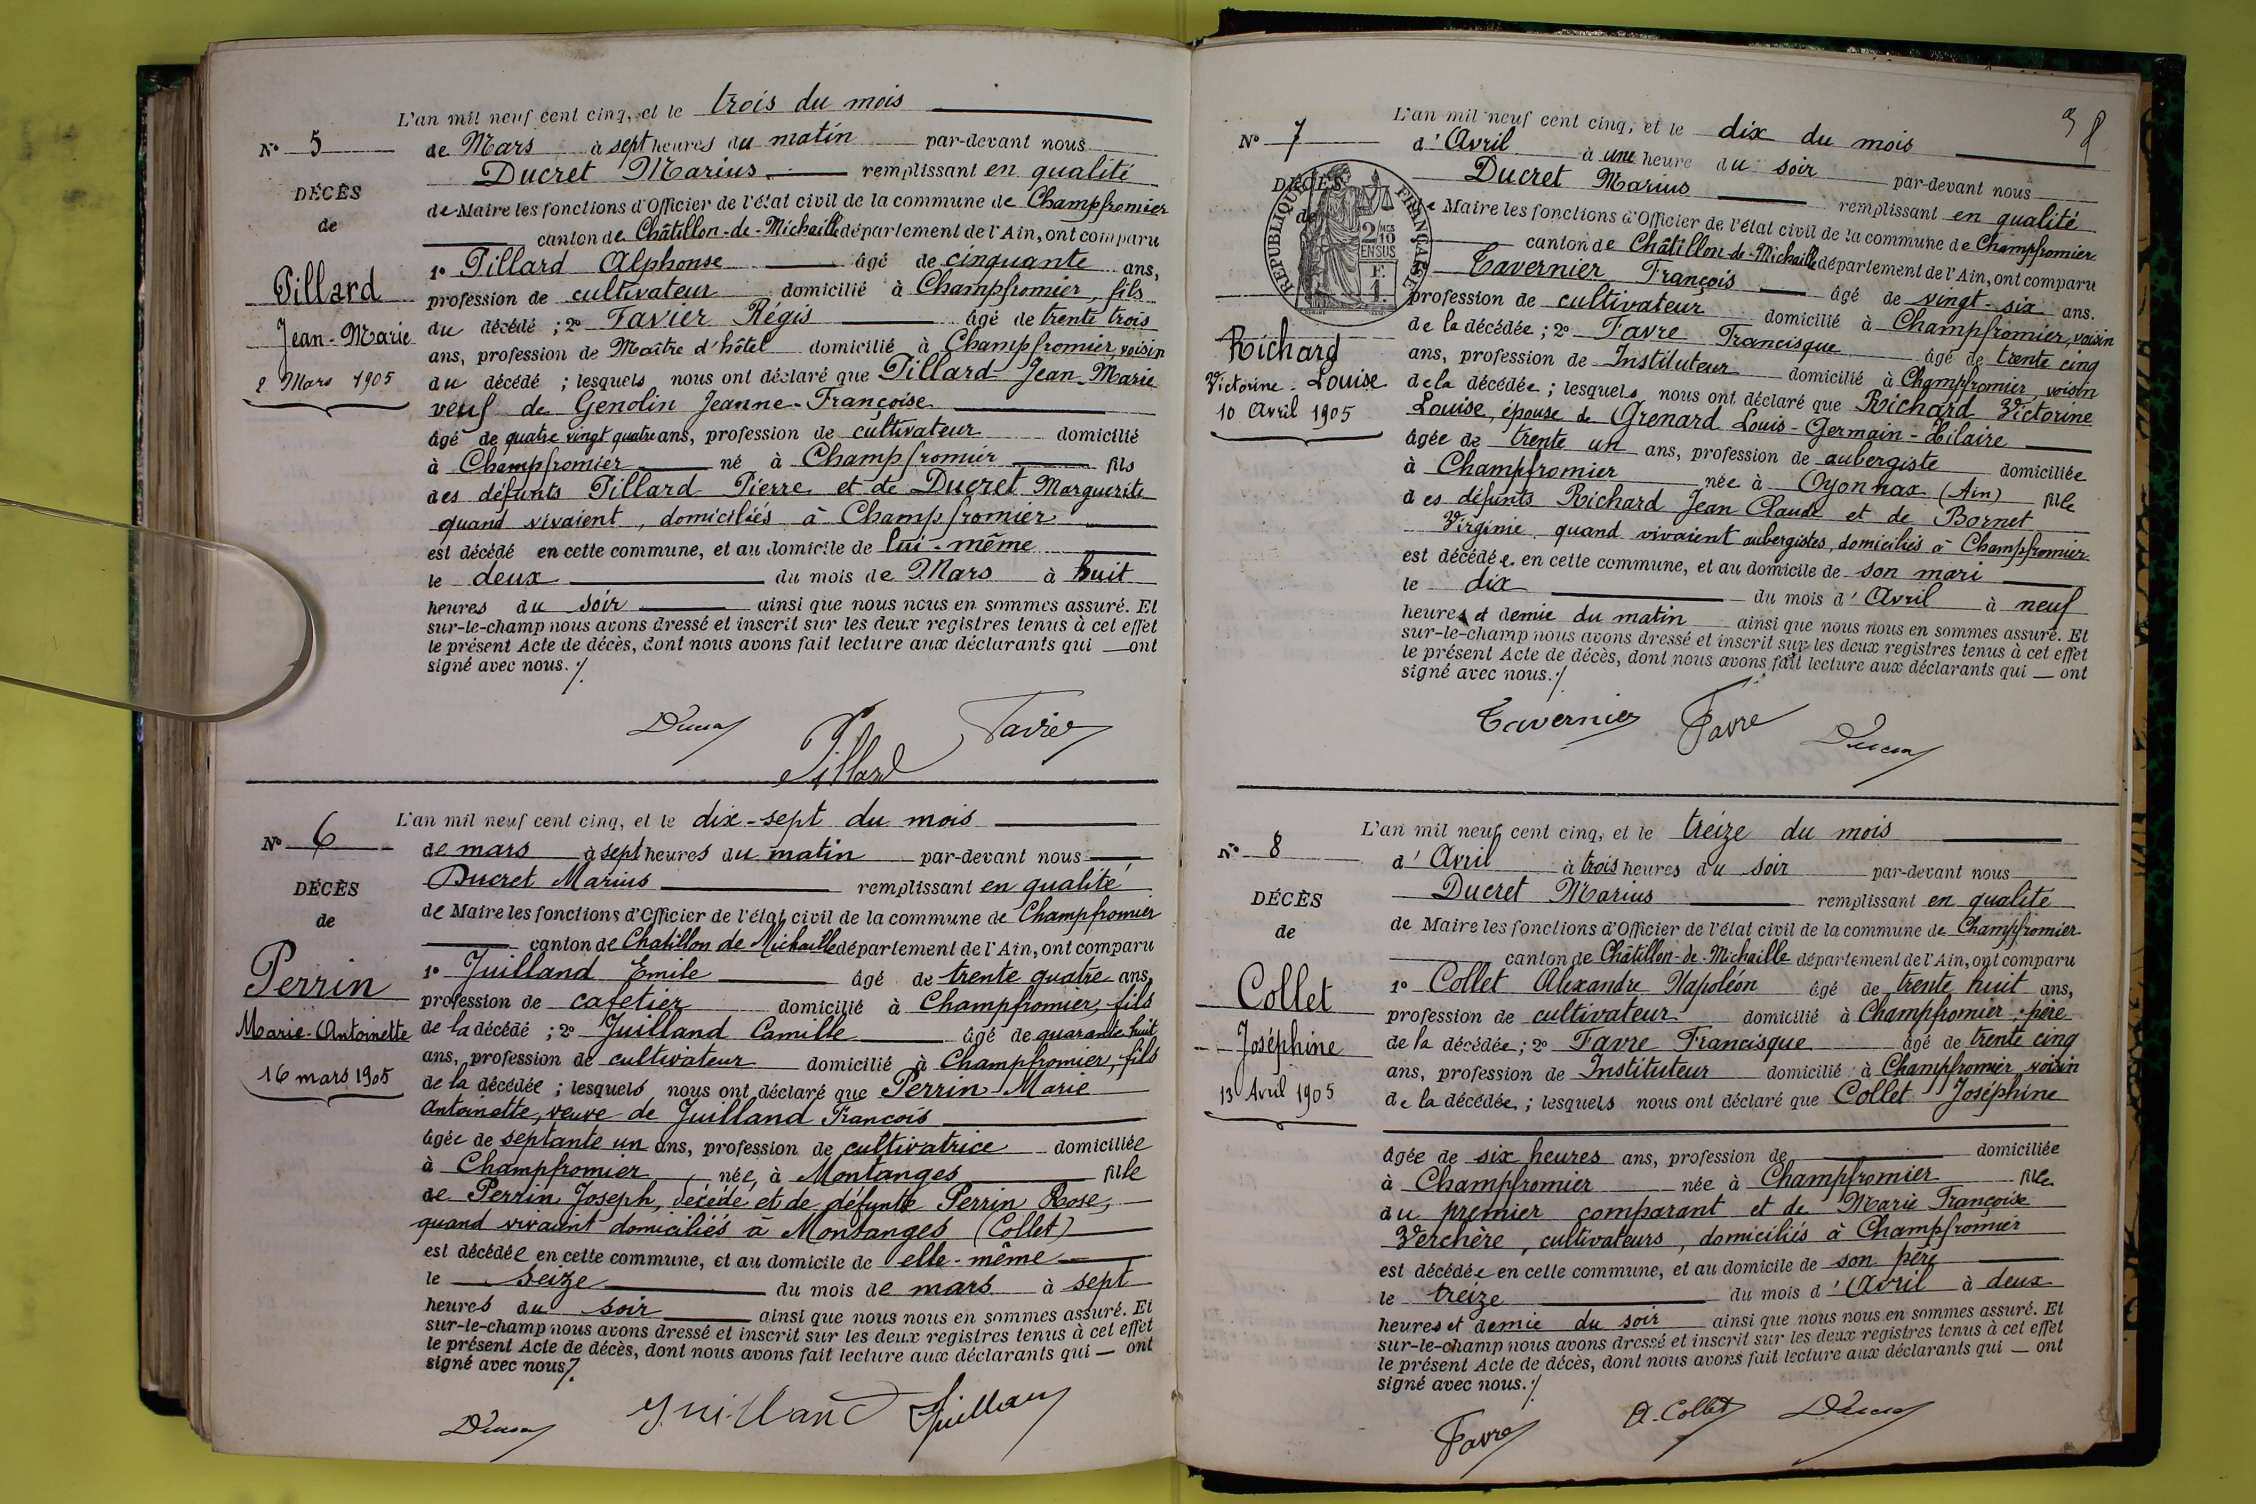 L'an mil neuf cent cinq, et le trois du mois
N° 5
de Mars à sept heures du matin par-devant nous
Ducret Marius remplissant en qualité
DÉCÈS
de Maire les fonctions d'Officier de l'état civil de la commune de Champfromier
de
canton de Châtillon-de-Michaille département de l'Ain, ont comparu
1° Pillard Alphonse âgé de cinquante ans,
Pillard
profession de cultivateur domicilié à Champfromier, fils
Jean-Marie
du décédé ; 2° Tavier Régis âgé de trente trois
ans, profession de Maître d'hôtel domicilié à Champfromier, voisin
2 Mars 1905
du décédé ; lesquels nous ont déclaré que Pillard Jean-Marie
veuf de Genolin Jeanne-Françoise
âgé de quatre vingt quatre ans, profession de cultivateur domicilié
à Champfromier né à Champfromier fils
des défunts Pillard Pierre et de Ducret Marguerite
quand vivaient, domiciliés à Champfromier
est décédé en cette commune, et au domicile de lui-même
le deux du mois de Mars à huit
heures du soir ainsi que nous nous en sommes assuré. Et
sur-le-champ nous avons dressé et inscrit sur les deux registres tenus à cet effet
le présent Acte de décès, dont nous avons fait lecture aux déclarants qui ont
signé avec nous./.
Ducret Pillard Tavier
L'an mil neuf cent cinq, et le dix-sept du mois
N° 6
de mars à sept heures du matin par-devant nous
Ducret Marius remplissant en qualité
DÉCÈS
de Maire les fonctions d'Officier de l'état civil de la commune de Champfromier
de
canton de Chatillon de Michaille département de l'Ain, ont comparu
1° Juilland Emile âgé de trente quatre ans,
Perrin
profession de cafetier domicilié à Champfromier, fils
Marie-Antoinette
de la décédé ; 2° Juilland Camille âgé de quarante huit
ans, profession de cultivateur domicilié à Champfromier, fils
16 mars 1905
de la décédée ; lesquels nous ont déclaré que Perrin Marie
Antoinette, veuve de Juilland François
âgée de septante un ans, profession de cultivatrice domiciliée
à Champfromier, née, à Montanges fille
de Perrin Joseph, décédé et de défunte Perrin Rose,
quand vivaient domiciliés à Montanges (Collet)
est décédée en cette commune, et au domicile de elle-même
le seize du mois de mars à sept
heures du soir ainsi que nous nous en sommes assuré. Et
sur-le-champ nous avons dressé et inscrit sur les deux registres tenus à cet effet
le présent Acte de décès, dont nous avons fait lecture aux déclarants qui ont
signé avec nous./.
Ducret Juilland Juilland
L'an mil neuf cent cinq, et le dix du mois
N° 7
d'Avril à une heure du soir par-devant nous
Ducret Marius remplissant en qualité
DÉCÈS
de Maire les fonctions d'Officier de l'état civil de la commune de Champfromier
de
RÉPUBLIQUE FRANÇAISE
2/10
EN SUS
canton de Châtillon-de-Michaille département de l'Ain, ont comparu
Tavernier François âgé de vingt-six ans.
profession de cultivateur domicilié à Champfromier, voisin
Richard
de la décédée ; 2° Favre Francisque âgé de trente cinq
Victorine-Louise
ans, profession de Instituteur domicilié à Champfromier, voisin
10 Avril 1905
de la décédée ; lesquels nous ont déclaré que Richard Victorine
Louise, épouse de Grenard Louis-Germain-Hilaire
âgée de trente un ans, profession de aubergiste domiciliée
à Champfromier née à Oyonnax (Ain) fille
des défunts Richard Jean Claude et de Bornet
Virginie quand vivaient aubergistes, domiciliés à Champfromier
est décédée en cette commune, et au domicile de son mari
le dix du mois d'Avril à neuf
heures et demie du matin ainsi que nous nous en sommes assuré. Et
sur-le-champ nous avons dressé et inscrit sur les deux registres tenus à cet effet
le présent Acte de décès, dont nous avons fait lecture aux déclarants qui ont
signé avec nous./.
Tavernier Favre Ducret
L'an mil neuf cent cinq, et le treize du mois
N° 8
d'Avril à trois heures du soir par-devant nous
Ducret Marius remplissant en qualité
DÉCÈS
de Maire les fonctions d'Officier de l'état civil de la commune de Champfromier
de
canton de Châtillon-de-Michaille département de l'Ain, ont comparu
1° Collet Alexandre Napoléon âgé de trente huit ans,
Collet
profession de cultivateur domicilié à Champfromier, père
Joséphine
de la décédée ; 2° Favre Francisque âgé de trente cinq
ans, profession de Instituteur domicilié à Champfromier, voisin
13 Avril 1905
de la décédée ; lesquels nous ont déclaré que Collet Joséphine
âgée de six heures ans, profession de domiciliée
à Champfromier née à Champfromier fille
du premier comparant et de Marie Françoise
Verchère, cultivateurs, domiciliés à Champfromier
est décédée en cette commune, et au domicile de son père
le treize du mois d'Avril à deux
heures et demie du soir ainsi que nous nous en sommes assuré. Et
sur-le-champ nous avons dressé et inscrit sur les deux registres tenus à cet effet
le présent Acte de décès, dont nous avons fait lecture aux déclarants qui ont
signé avec nous./.
Favre A. Collet Ducret